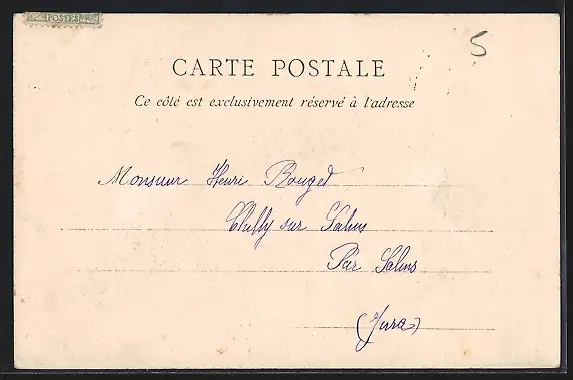 POSTES
5
CARTE POSTALE
Ce côté est exclusivement réservé à l'adresse
Monsieur Henri Bouget
Chilly sur Salins
Par Salins
(Jura)